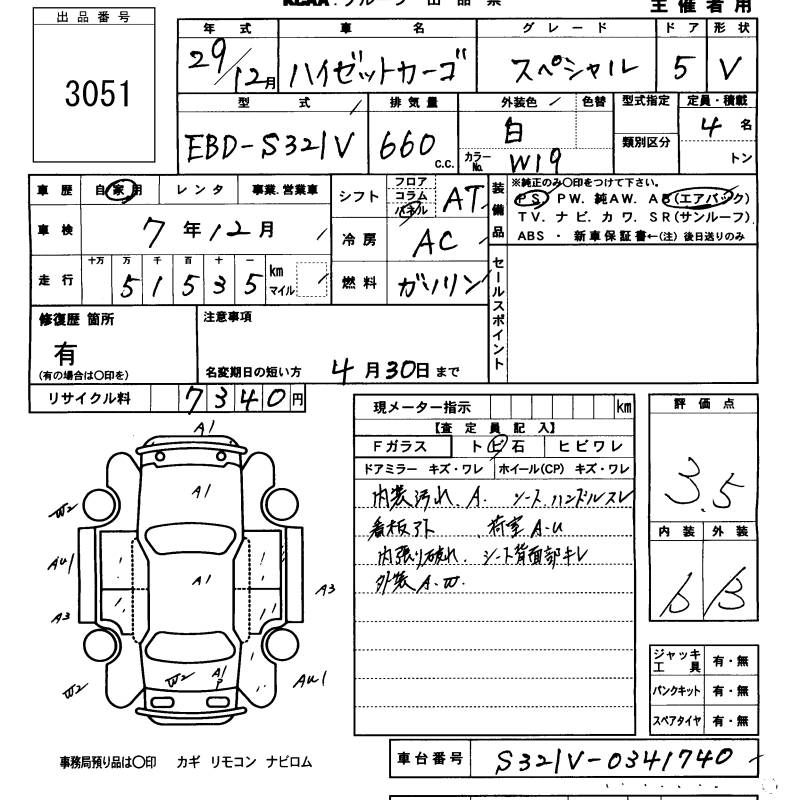 KCAA グループ 出品票
主催者用
出品番号
3051
年式 車名 グレード ドア 形状
29/12月 ハイゼットカーゴ スペシャル 5 V
型式 排気量 外装色 色替 型式指定 定員・積載
EBD-S321V 660 c.c. 白 類別区分 4名
カラーNo. W19 トン
車歴 自家用 レンタ 事業.営業車
車検 7年12月
走行 十万 万 千 百 十 一 km マイル
51535
シフト フロア コラム パネル AT
冷房 AC
燃料 ガソリン
装備品
※純正のみ〇印をつけて下さい。
PS PW. 純AW. AB(エアバック)
TV. ナビ. カワ. SR(サンルーフ).
ABS ・ 新車保証書←(注)後日送りのみ
セールスポイント
修復歴 箇所
有
(有の場合は〇印を)
注意事項
名変期日の短い方 4月30日まで
リサイクル料 7340円
現メーター指示 km
【査定員記入】
Fガラス トビ石 ヒビワレ
ドアミラー キズ・ワレ ホイール(CP) キズ・ワレ
内装汚れ. A. シート.ハンドルスレ
看板アト 荷室 A-U
内張り破れ. シート背面部キレ
外装 A. W.
評価点
3.5
内装 外装
b B
ジャッキ工具 有・無
パンクキット 有・無
スペアタイヤ 有・無
A1
A1
W2
AU1
A1
A3
A3
W2
W2
W2
A1
P
AU1
事務局預り品は〇印 カギ リモコン ナビロム
車台番号 S321V-0341740